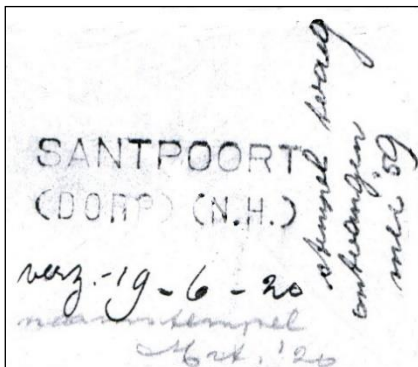 SANTPOORT
(DORP) (N.H.)
verz. - 19 - 6 - 20
naamstempel
Mrt. '20
stempel terug
ontvangen
mei '59